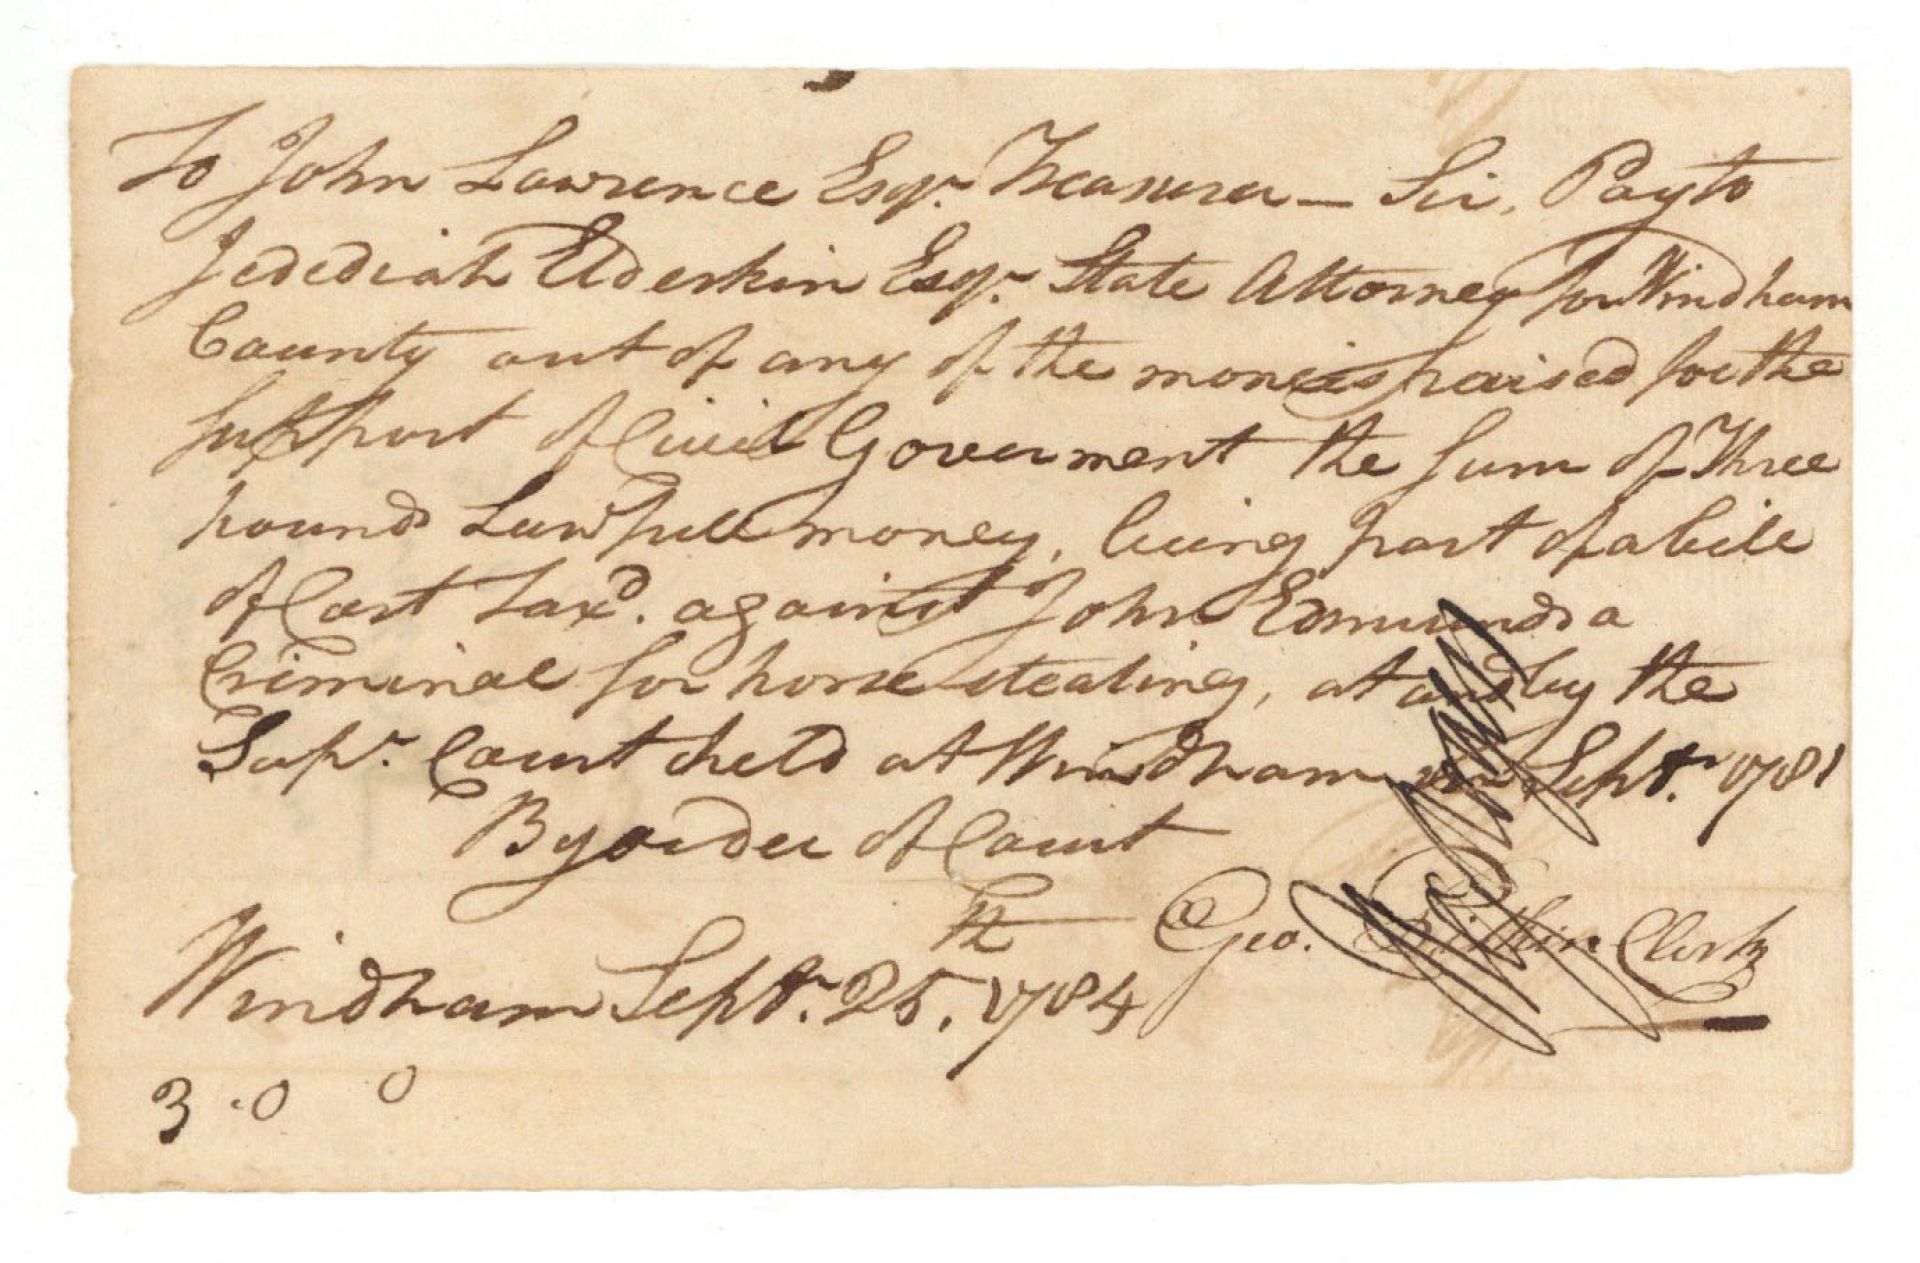 To John Lawrence Esqr. Treasurer – Sir, Pay to
Jedediah Elderkin Esqr. State Attorney for Windham
County out of any of the monies raised for the
Support of Civil Goverment the Sum of Three
pounds Lawfull money, being part of a bill
of Cost Taxd. against John Edmunds a
Criminal for horse stealing, at and by the
Supr. Court held at Windham in Septr. 1781
By order of Court
Geo. Pitkin Clerk
Windham Septr. 25th, 1784
3 . 0 0